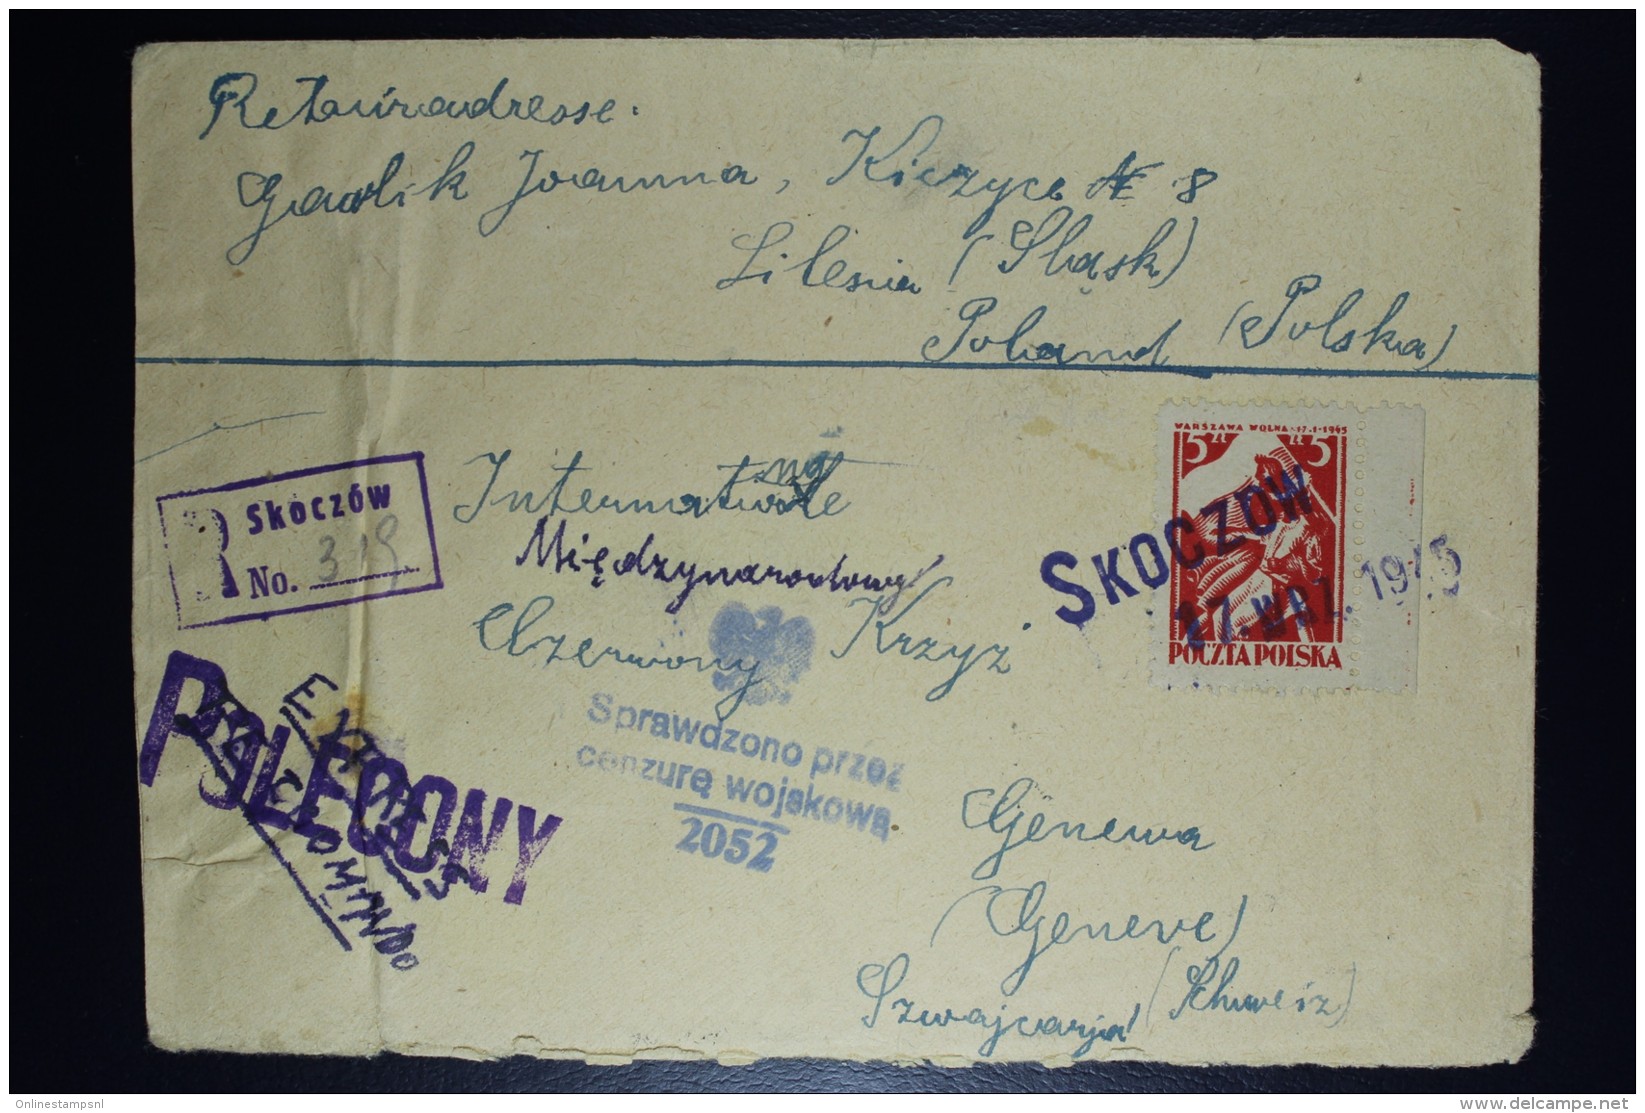 Retouradresse.
Gawlik Joanna, Kiczyce № 8
Silesia (Śląsk)
Poland (Polska)
WARSZAWA WOLNA 17-1-1945
5 ZŁ ZŁ 5
POCZTA POLSKA
SKOCZÓW
27. WRZ. 1945
R Skoczów
No. 319
Internationale
Międzynarodowy
Czerwony Krzyż
Sprawdzono przez
cenzurę wojskową
2052
POLECONY
EXPRESS
RECOMANDO
Genewa
(Geneve)
Szwajcarja (Schweiz)
Onlinestampsnl
delcampe.net